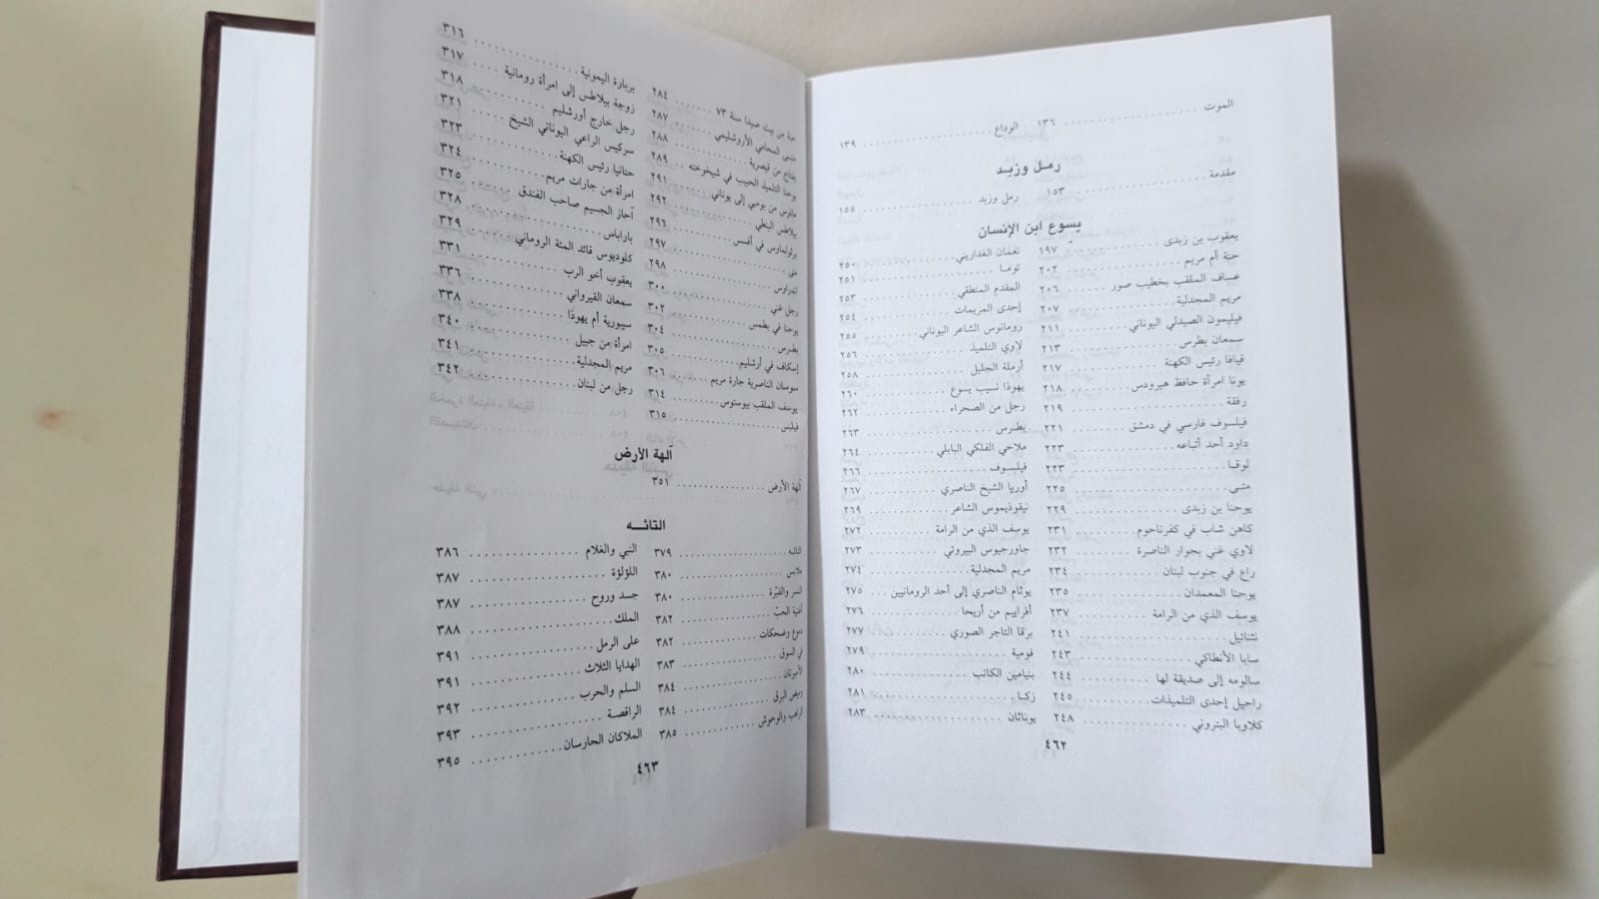 الموت ١٣٦
الوداع ١٣٩
رمل وزبد
مقدمة ١٥٣
رمل وزبد ١٥٥
يسوع ابن الإنسان
يعقوب بن زبدى ١٩٧
حنة أم مريم ٢٠٢
عساف الملقب بخطيب صور ٢٠٦
مريم المجدلية ٢٠٧
فيليمون الصيدلي اليوناني ٢١١
سمعان بطرس ٢١٣
قيافا رئيس الكهنة ٢١٧
يونا امرأة حافظ هيرودس ٢١٨
رفقة ٢١٩
فيلسوف فارسي في دمشق ٢٢١
داود أحد أتباعه ٢٢٣
لوقا ٢٢٣
متى ٢٢٥
يوحنا بن زبدى ٢٢٩
كاهن شاب في كفرناحوم ٢٣١
لاوي غني بجوار الناصرة ٢٣٢
راع في جنوب لبنان ٢٣٤
يوحنا المعمدان ٢٣٥
يوسف الذي من الرامة ٢٣٧
نثنائيل ٢٤١
سابا الأنطاكي ٢٤٣
سالومه إلى صديقة لها ٢٤٤
راحيل إحدى التلميذات ٢٤٥
كلاوبا البتروني ٢٤٨
نعمان الغداريني ٢٥٠
توما ٢٥١
المقدم المنطقي ٢٥٣
إحدى المريمات ٢٥٤
رومانوس الشاعر اليوناني ٢٥٥
لاوي التلميذ ٢٥٦
أرملة الجليل ٢٥٨
يهوذا نسيب يسوع ٢٦٠
رجل من الصحراء ٢٦٢
بطرس ٢٦٣
ملاخي الفلكي البابلي ٢٦٤
فيلسوف ٢٦٦
أوريا الشيخ الناصري ٢٦٧
نيقوذيموس الشاعر ٢٦٩
يوسف الذي من الرامة ٢٧٢
جاورجيوس البيروتي ٢٧٣
مريم المجدلية ٢٧٤
يوثام الناصري إلى أحد الرومانيين ٢٧٥
أفراييم من أريحا ٢٧٦
برقا التاجر الصوري ٢٧٧
فومية ٢٧٩
بنيامين الكاتب ٢٨٠
زكا ٢٨١
يوناثان ٢٨٣
٤٦٢
من بيت صيدا سنة ٧٣ ٢٨٤
المحامي الأروشليمي ٢٨٧
من قيصرية ٢٨٨
يوحنا التلميذ الحبيب في شيخوخته ٢٨٩
من بومبي إلى يوناني ٢٩١
بيلاطس البنطي ٢٩٢
في أفسس ٢٩٦
متى ٢٩٧
اندراوس ٢٩٨
رجل غني ٣٠٠
يوحنا في بطمس ٣٠٢
بطرس ٣٠٤
إسكاف في أرشليم ٣٠٥
سوسان الناصرية جارة مريم ٣٠٦
يوسف الملقب بيوستوس ٣١٤
فيلبس ٣١٥
بربارة اليمونية ٣١٦
زوجة بيلاطس إلى امرأة رومانية ٣١٧
رجل خارج أورشليم ٣١٨
سركيس الراعي اليوناني الشيخ ٣٢١
حنانيا رئيس الكهنة ٣٢٣
امرأة من جارات مريم ٣٢٤
آحاز الجسيم صاحب الفندق ٣٢٥
باراباس ٣٢٨
كلوديوس قائد المئة الروماني ٣٢٩
يعقوب أخو الرب ٣٣١
سمعان القيرواني ٣٣٦
سيبورية أم يهوذا ٣٣٨
امرأة من جبيل ٣٤٠
مريم المجدلية ٣٤١
رجل من لبنان ٣٤٢
آلهة الأرض
آلهة الأرض ٣٥١
التائـه
التائه ٣٧٩
ملابس ٣٨٠
النسر والقبّرة ٣٨٠
أغنية الحبّ ٣٨٢
دموع وضحكات ٣٨٢
في السوق ٣٨٣
الأميرتان ٣٨٤
وميض البرق ٣٨٤
الراهب والوحوش ٣٨٥
النبي والغلام ٣٨٦
اللؤلؤة ٣٨٧
جسد وروح ٣٨٧
الملك ٣٨٨
على الرمل ٣٩١
الهدايا الثلاث ٣٩١
السلم والحرب ٣٩٢
الراقصة ٣٩٣
الملاكان الحارسان ٣٩٥
٤٦٣